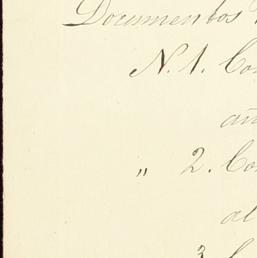 Documentos
N. 1. Co
añ
" 2. Co
al
3. C